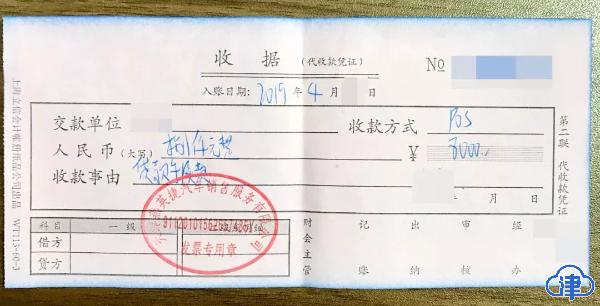 收 据 (代收款凭证) №
入账日期: 2019 年 4 月 日
交款单位 收款方式 POS
人民币(大写) 捌仟元整 ¥ 8000.—
收款事由 贷款手续费
英捷汽车销售服务有限公司
发票专用章
科目 一级
借方
贷方
财会主管 记账 出纳 审核 经办
第二联 代收款凭证
上海立信会计账册纸品公司出品 WT113-60-3
津